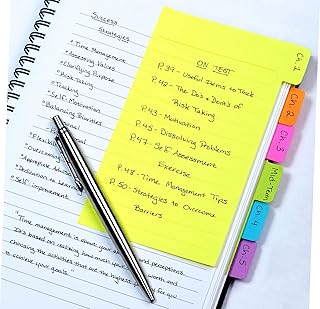 Success
Strategies
Time Management
Assessing Values
Clarifying Purpose
Risk Taking
Tracking
Self-Motivation
Balancing Priorities
Flexible
Overcoming
Self-improvement
"Time management is about your
It's based on realizing how much your
choosing the activities that are the highest
to achieve your goals."
and perceptions
worth and
for you
ON TEST
P.39 - Useful Items to Track
P.42 - The Do's & Dont's of
Risk Taking
P.43 - Motivation
P.45 - Dissolving Problems
P.47 - Self Assessment
Exercise
P.48 - Time Management Tips
P.50 - Strategies to Overcome
Barriers
Ch. 1
Ch. 2
Ch. 3
Mid-Term
Ch. 4
Ch. 5